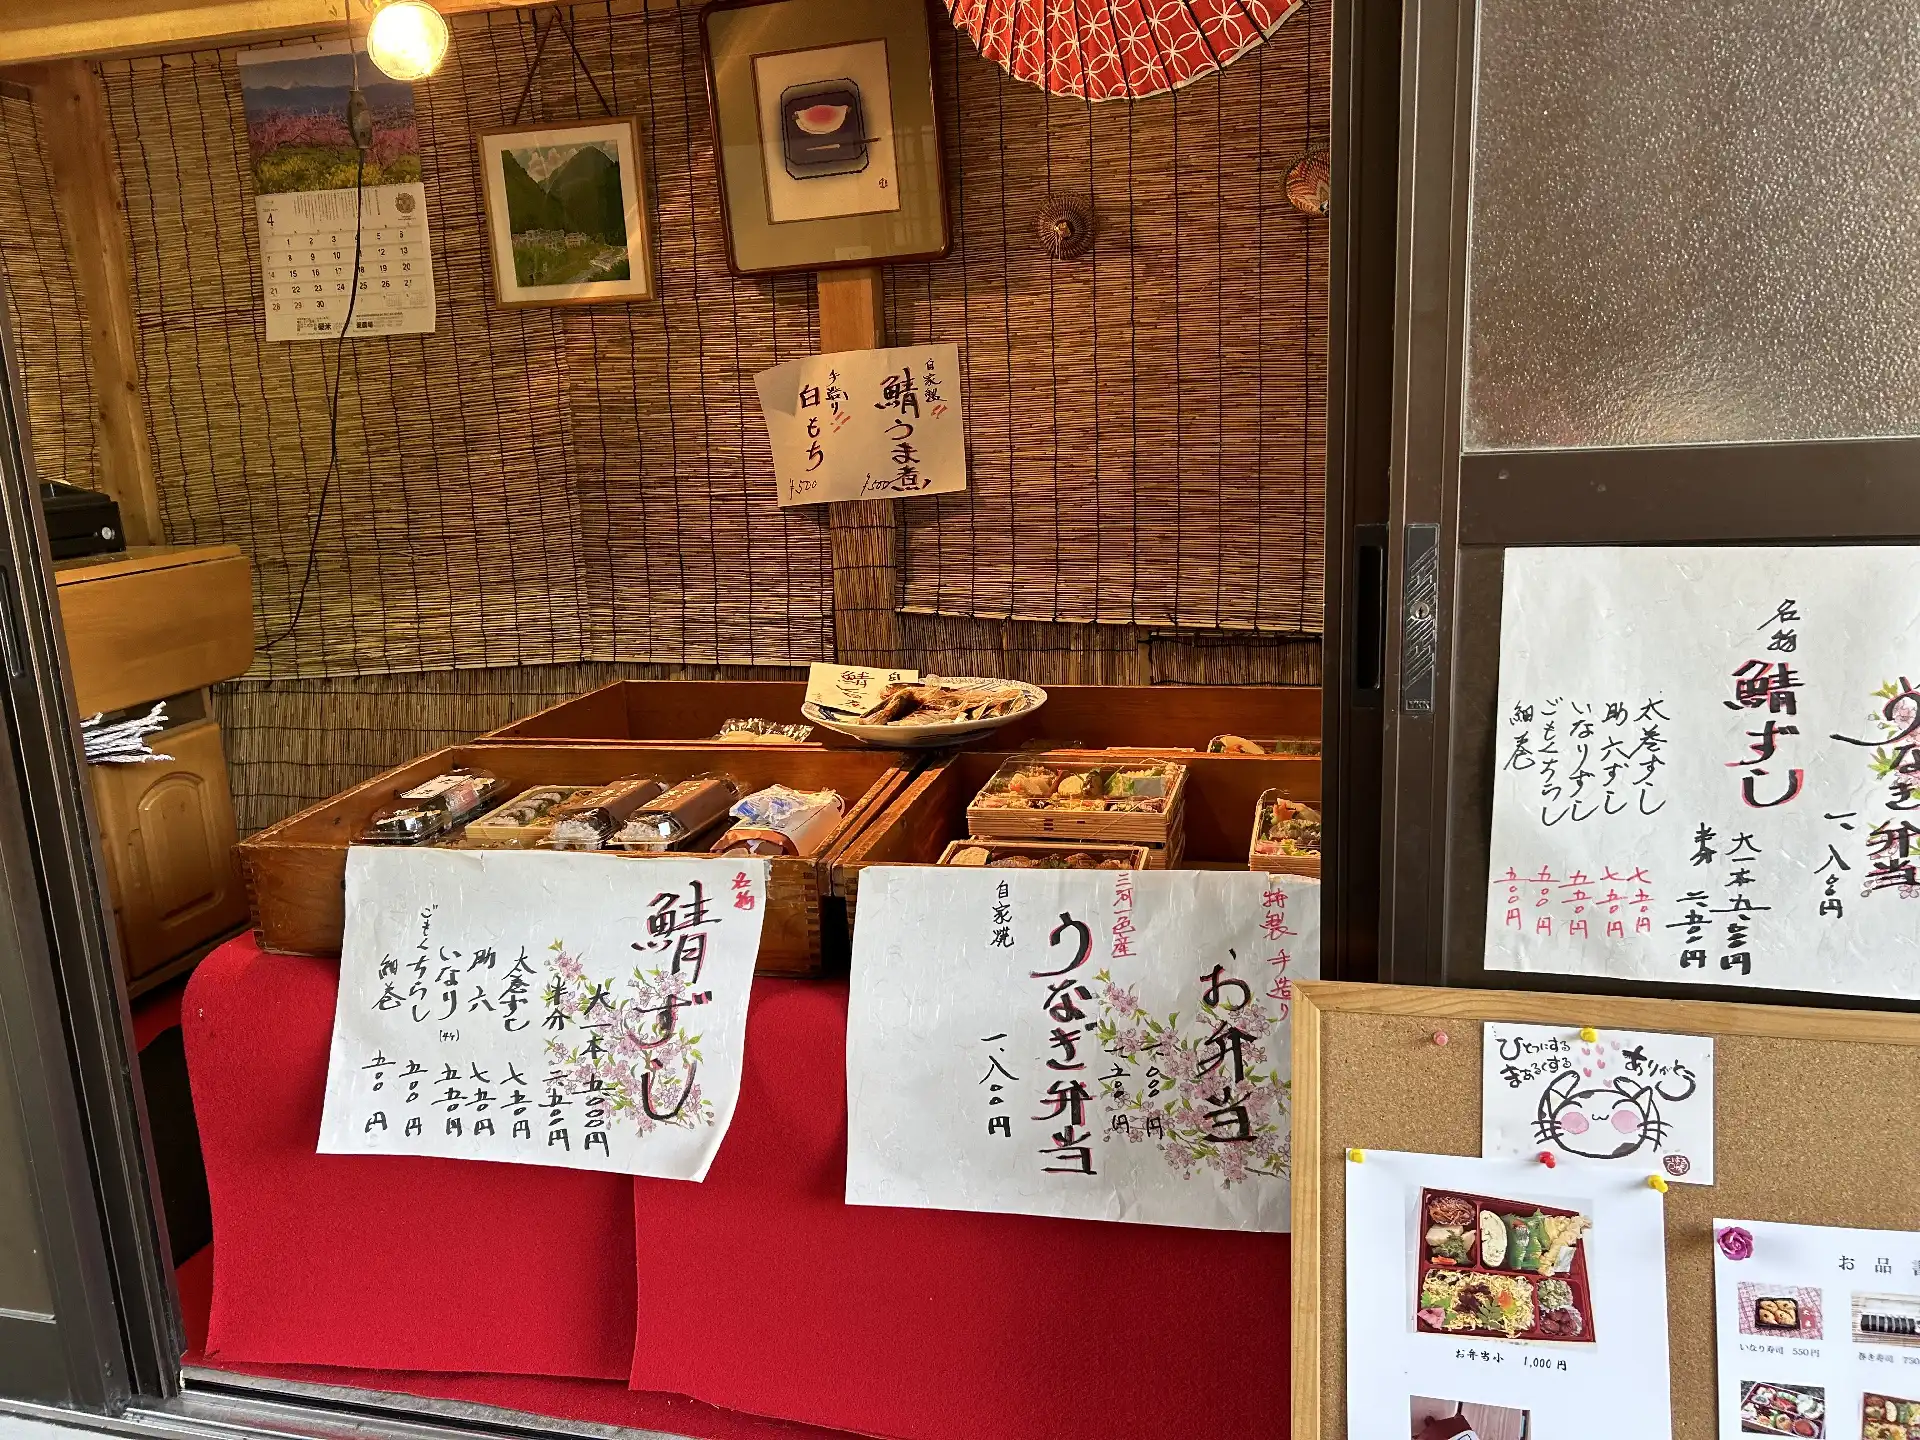 4
1 2 3 4 5 6
7 8 9 10 11 12 13
14 15 16 17 18 19 20
21 22 23 24 25 26 27
28 29 30
自家製
鯖うま煮
¥500
手造り
白もち
¥500
名物
鯖ずし
大一本 五、〇〇〇円
半分 二、五〇〇円
太巻ずし 七五〇円
助六 七五〇円
いなり(4ヶ) 五五〇円
ごもくちらし 五〇〇円
細巻 五〇〇円
特製 手造り
お弁当
一、〇〇〇円
一、五〇〇円
三河一色産
うなぎ弁当
自家焼
一、八〇〇円
うなぎ弁当
一、八〇〇円
名物
鯖ずし
大一本 五、〇〇〇円
半分 二、五〇〇円
太巻ずし 七五〇円
助六ずし 七五〇円
いなりずし 五五〇円
ごもくちらし 五〇〇円
細巻 五〇〇円
ありがとう
ひとつにする
まあるくする
お弁当小 1,000 円
お 品 書
いなり寿司 550円
巻き寿司 750